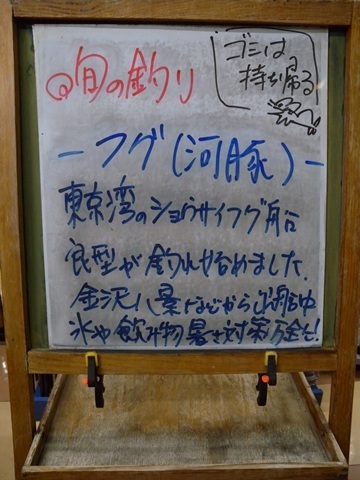 旬の釣り
ゴミは
持ち帰る
ーフグ(河豚)ー
東京湾のショウサイフグ船
良型が釣れ始めました
金沢八景などから出船中
氷や飲み物暑さ対策万全に!